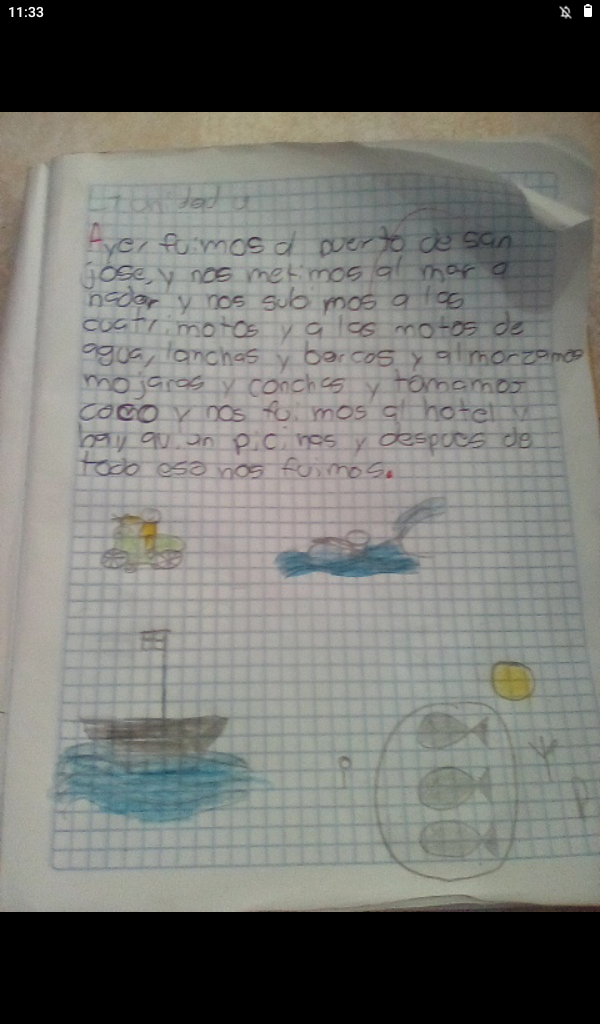 11:33
Ayer fuimos al puerto de san
jose, y nos metimos al mar a
nadar y nos subimos a las
cuatrimotos y a las motos de
agua, lanchas y barcos y almorzamos
mojaras y conchas y tomamos
coco y nos fuimos al hotel y
hay picinas y despues de
todo eso nos fuimos.